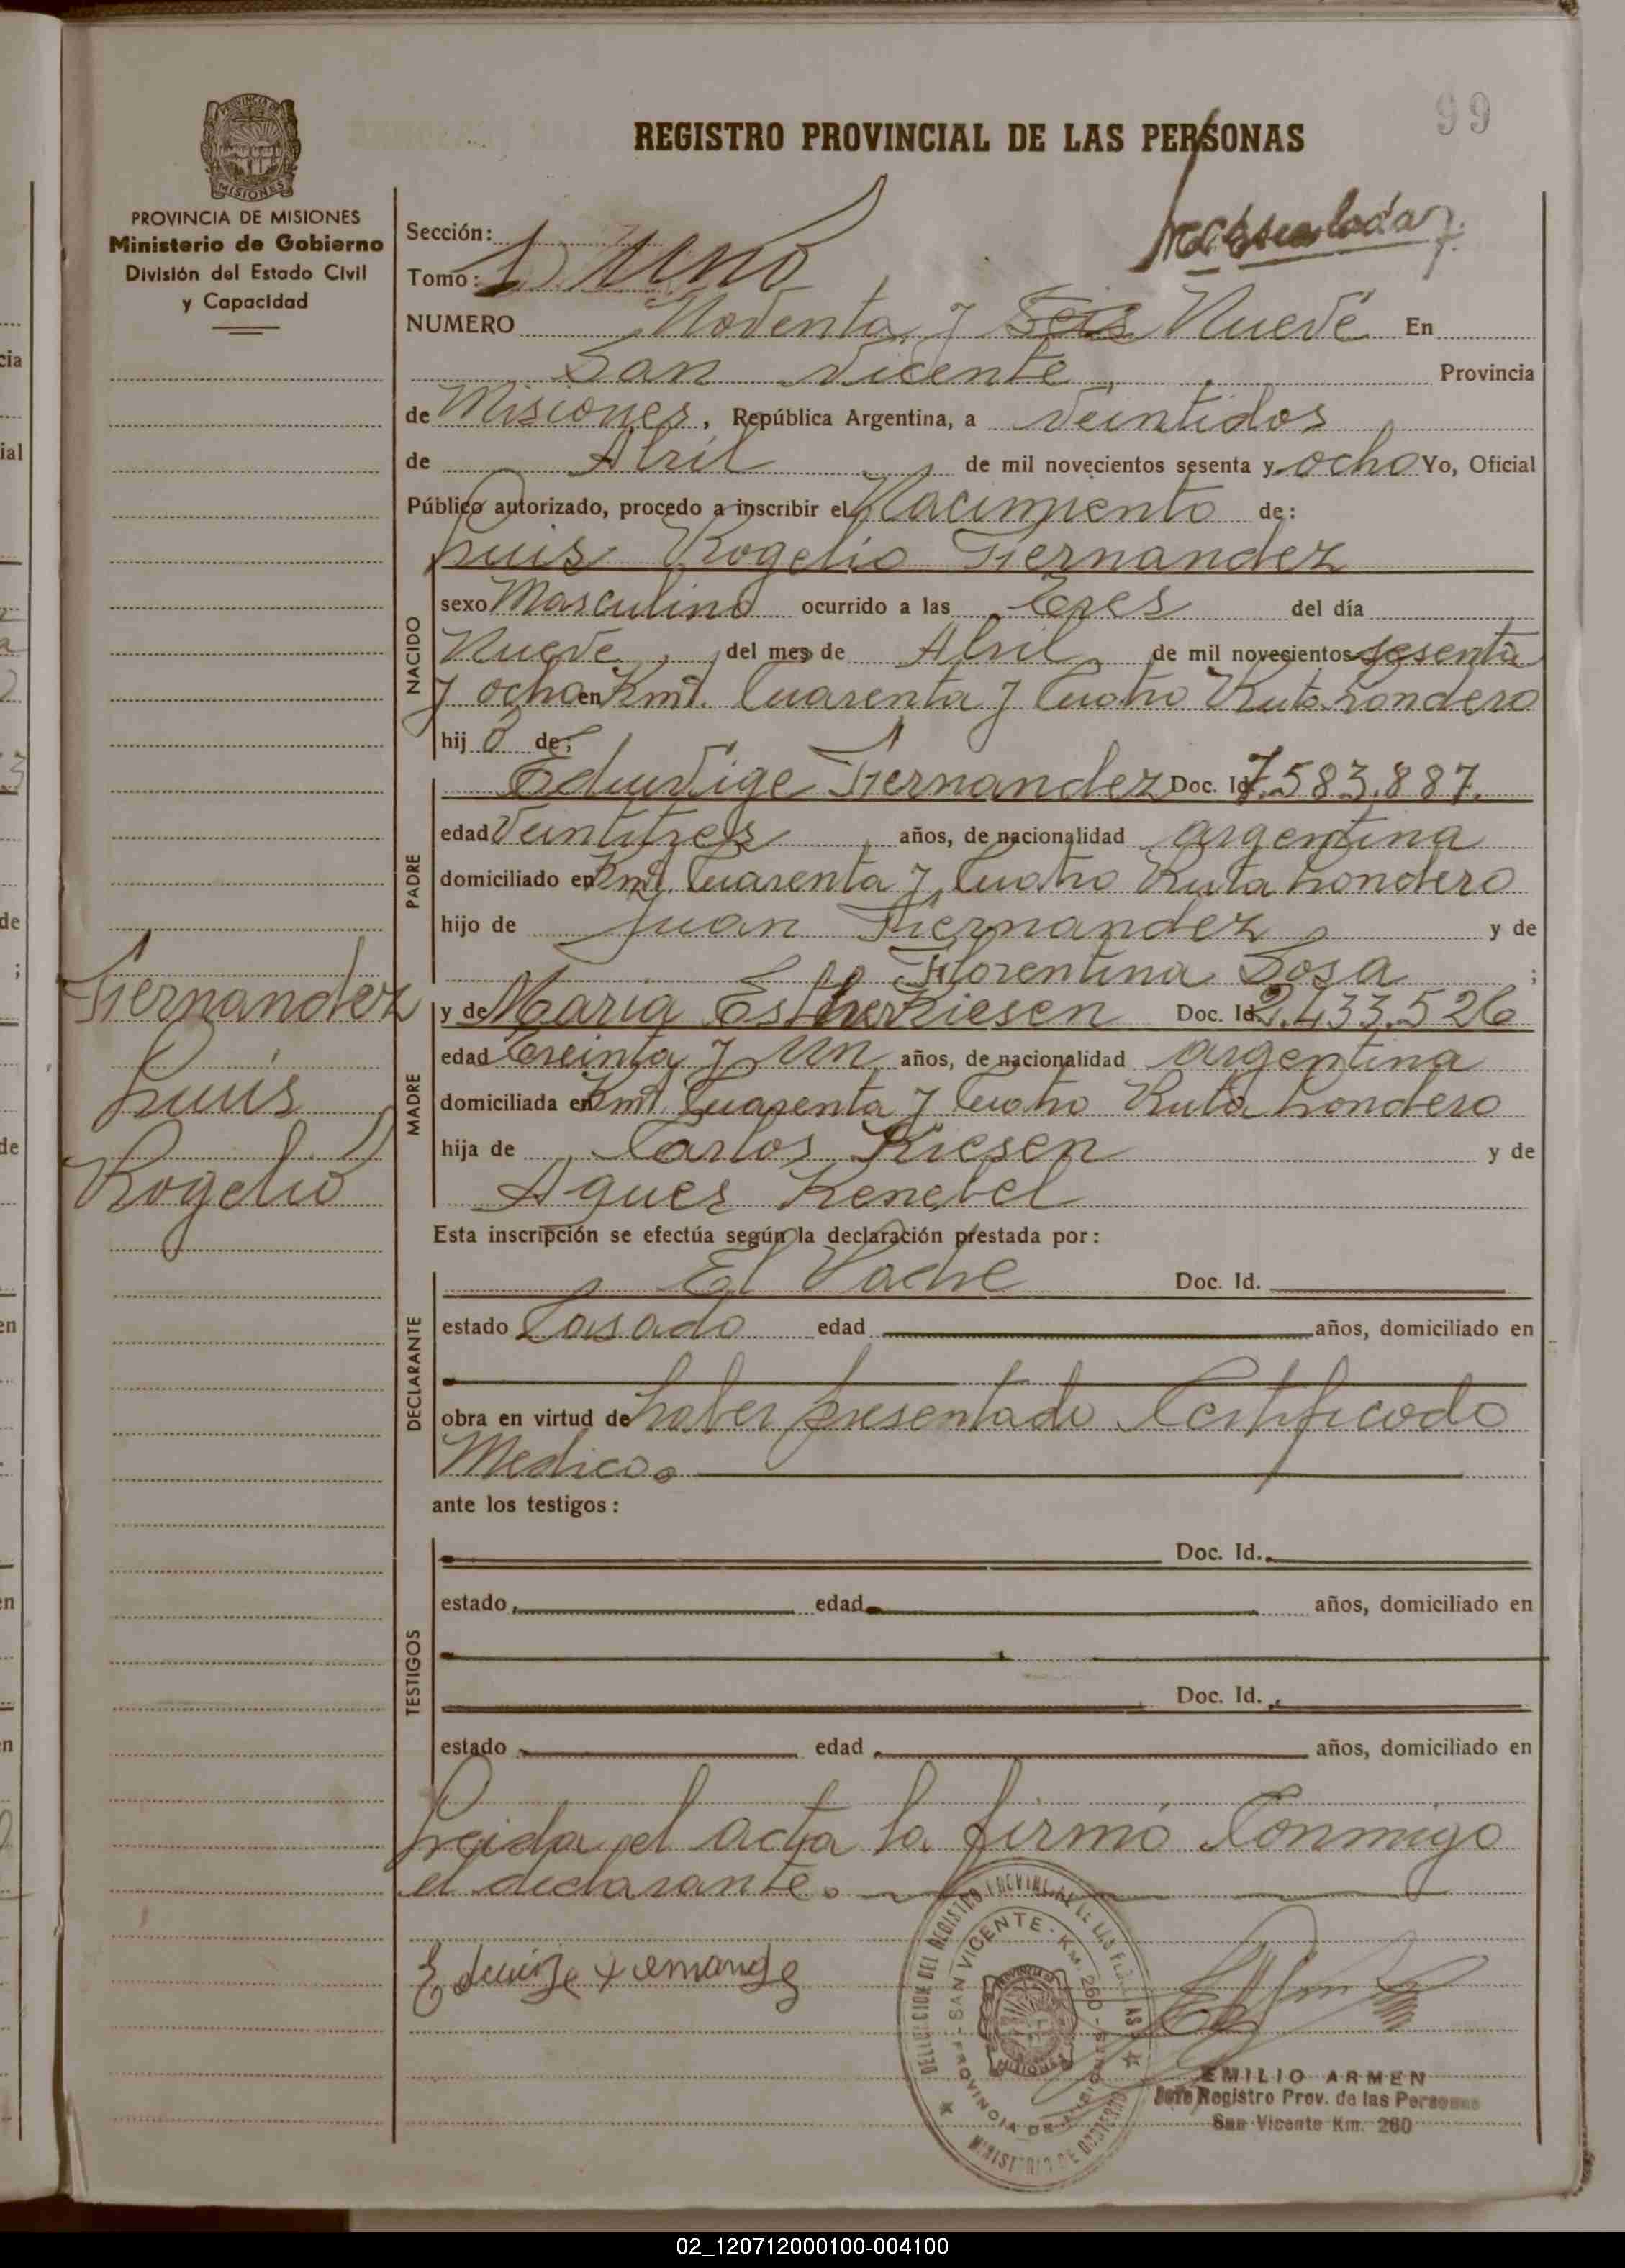 99
REGISTRO PROVINCIAL DE LAS PERSONAS
PROVINCIA DE MISIONES
PROVINCIA DE MISIONES
Ministerio de Gobierno
División del Estado Civil
y Capacidad
Sección:
Tomo: Uno
NUMERO Noventa y Seis Nueve En
San Vicente Provincia
de Misiones, República Argentina, a Veintidos
de Abril de mil novecientos sesenta y ocho Yo, Oficial
Público autorizado, procedo a inscribir el Nacimiento de:
Luis Rogelio Fernandez
NACIDO
sexo Masculino ocurrido a las Tres del día
Nueve del mes de Abril de mil novecientos sesenta
y ocho en Kmt. Cuarenta y Cuatro Ruta Londero
hijo de:
PADRE
Eduvige Fernandez Doc. Id. 7.583.887.
edad Veintitres años, de nacionalidad argentina
domiciliado en Kmt. Cuarenta y Cuatro Ruta Londero
hijo de Juan Fernandez y de
Florentina Sosa ;
Fernandez
Luis
Rogelio
MADRE
y de Maria Esther Kiesen Doc. Id. 2.433.526
edad Treinta y Un años, de nacionalidad argentina
domiciliada en Kmt. Cuarenta y Cuatro Ruta Londero
hija de Carlos Kiesen y de
Agues Kenebel
Esta inscripción se efectúa según la declaración prestada por:
DECLARANTE
El Padre Doc. Id.
estado Casado edad años, domiciliado en
obra en virtud de haber presentado Certificado
Medico.
ante los testigos:
TESTIGOS
Doc. Id.
estado edad años, domiciliado en
Doc. Id.
estado edad años, domiciliado en
Leida el acta la firmó Conmigo
el declarante.
DELEGACION DEL REGISTRO PROVINCIAL DE LAS PERSONAS
SAN VICENTE - Km. 260 - PROVINCIA DE MISIONES
MINISTERIO DE GOBIERNO
EMILIO ARMEN
Jefe Registro Prov. de las Personas
San Vicente Km. 260
02_120712000100-004100